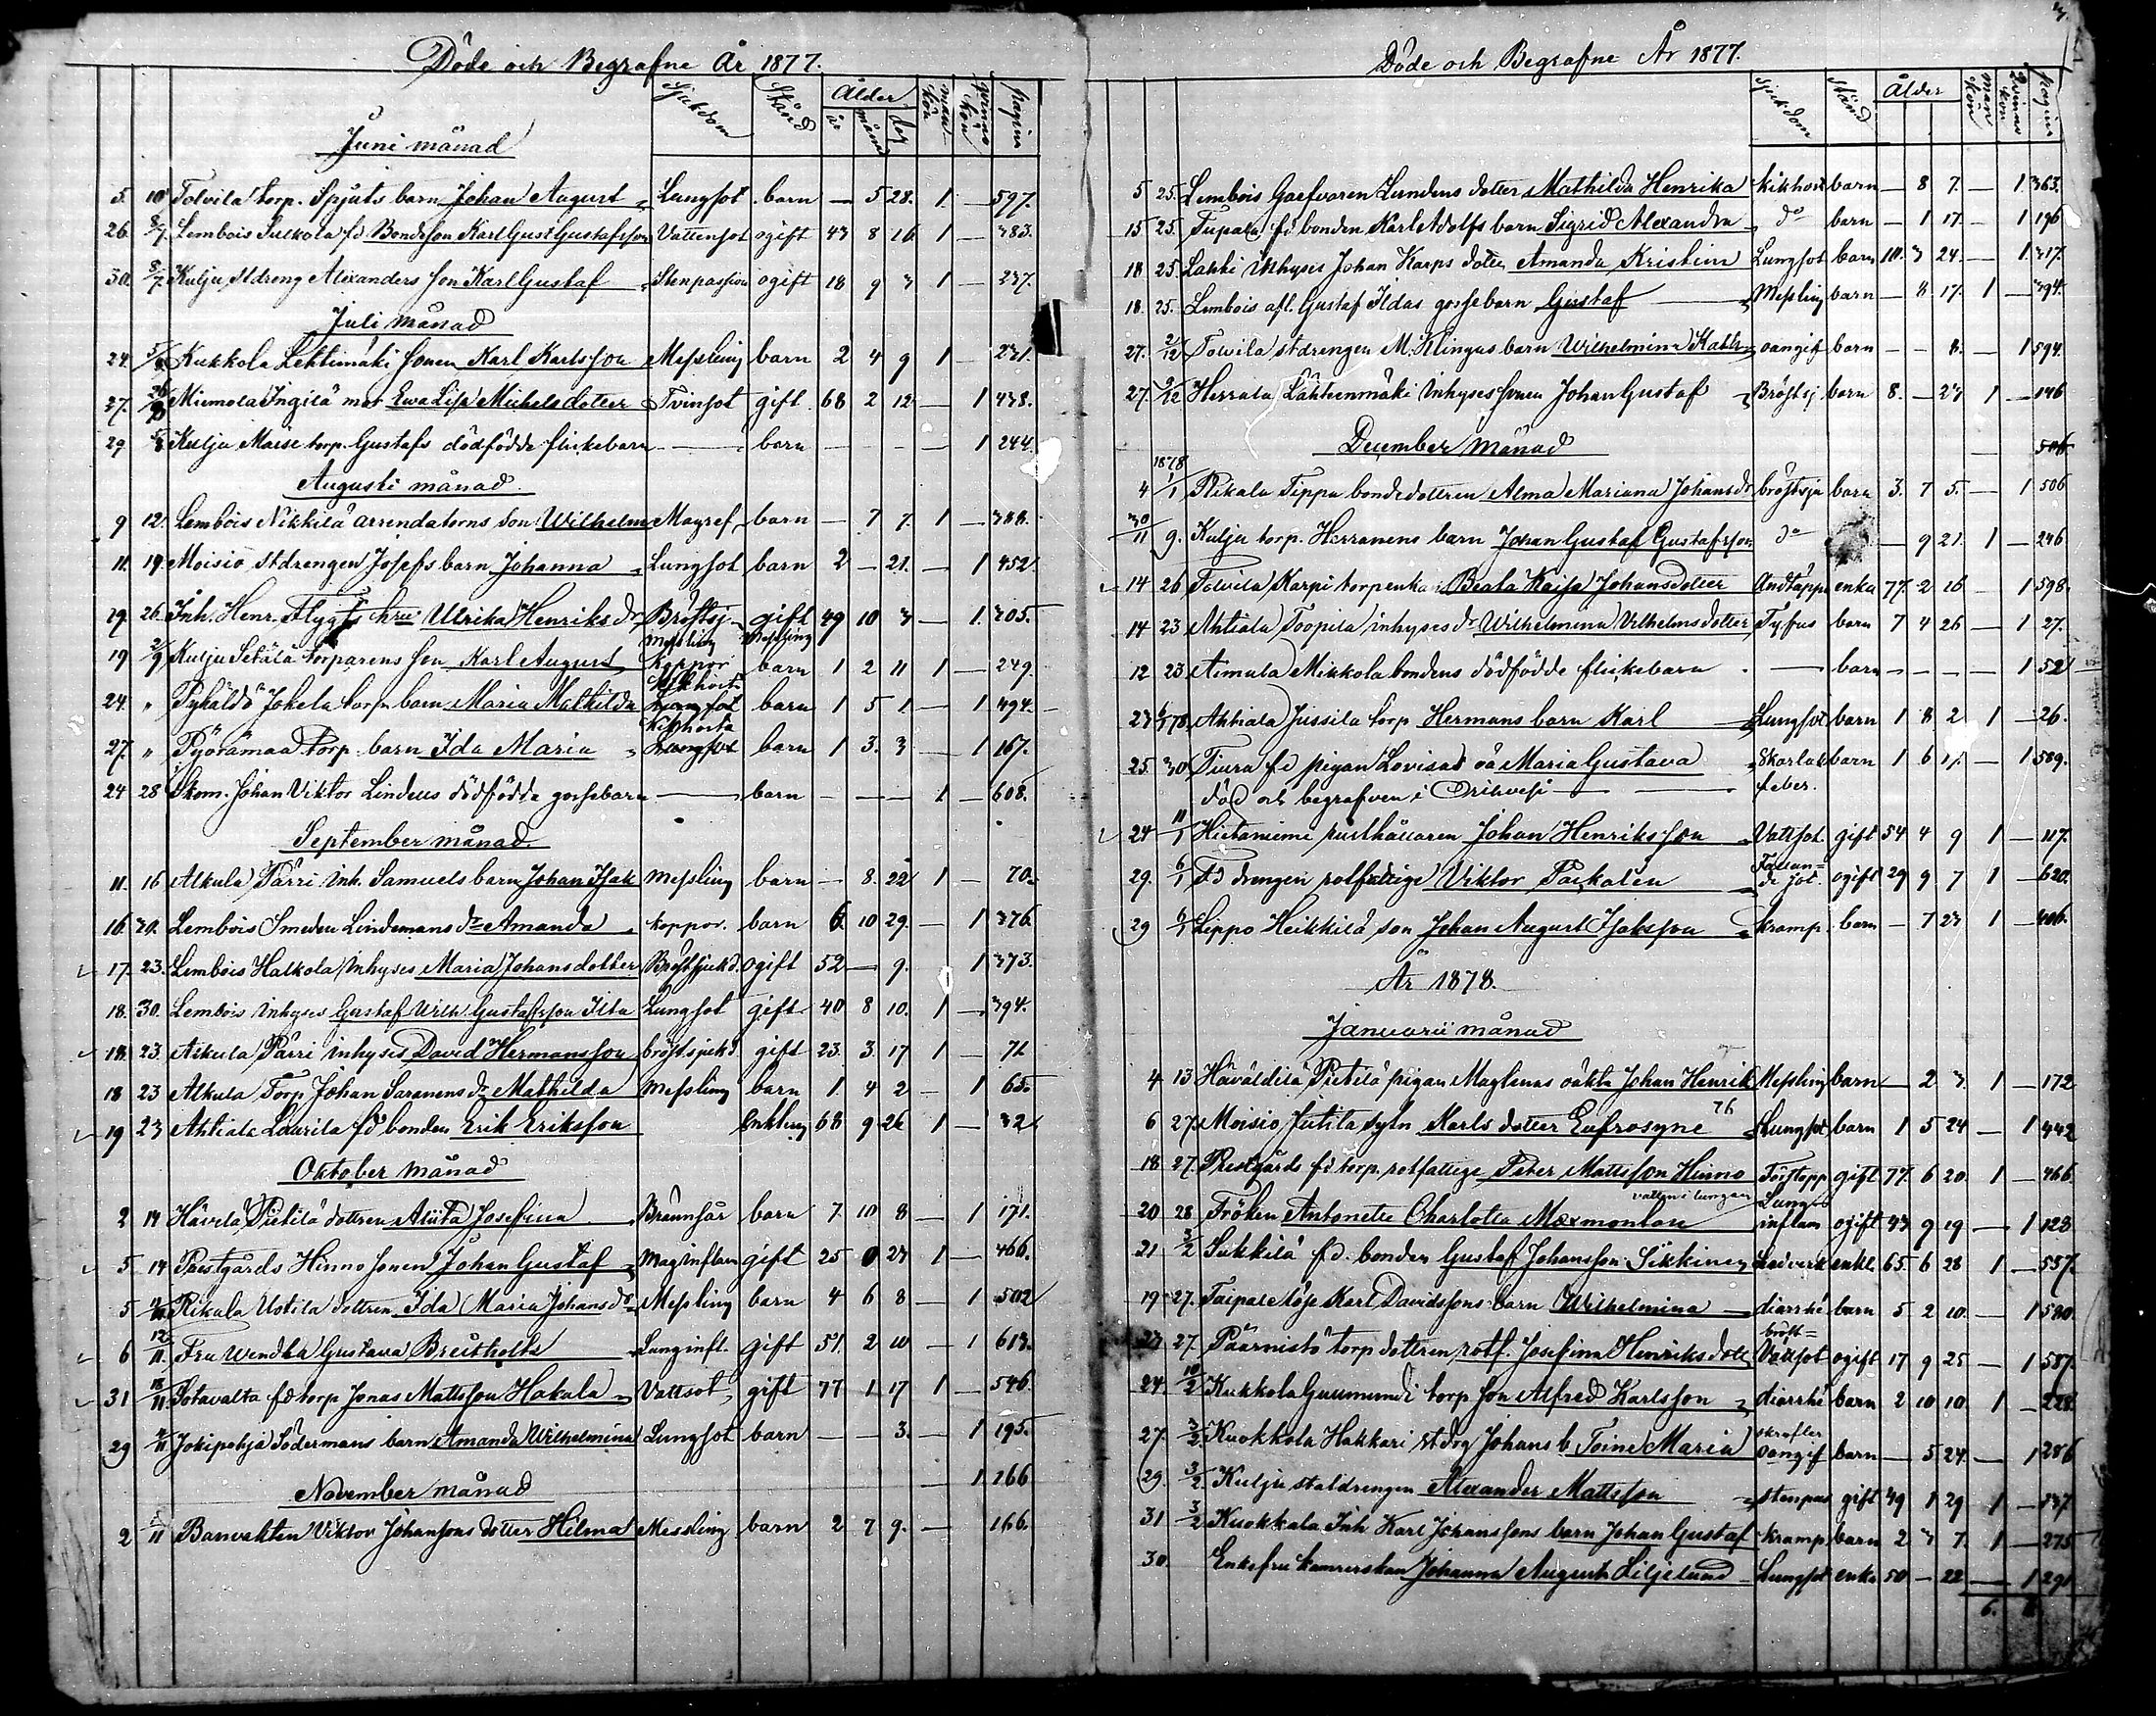 Döde och Begrafne År 1877.
Sjukdom Stånd Ålder år mån dag mankön qvinnokön pagina
Juni månad
5. 10 Tolvila torp. Spjuts barn Johan August Lungsot barn — 5 28. 1 — 597.
26. 8/7 Lembois Sulkola fd Bondeson Karl Gust Gustafsson Vattensot ogift 43 8 16 1 — 383.
30. 8/7 Kulju Stdreng Alexanders son Karl Gustaf Stenpassion ogift 18 9 3 1 — 237.
Juli månad
24. Kukkola Lehtimäki sonen Karl Karlsson Messling barn 2 4 9 1 — 231.
27. Miemola Ingilä mor Ewa Lisa Michelsdotter Tvinsot gift 68 2 12 — 1 438.
29 Kulju Maise torp. Gustafs dödfödde flickebarn — barn — — — — 1 244.
Augusti månad
9 12. Lembois Nikkilä arrendatorns son Wilhelm Magref barn — 7 7. 1 — 388.
11. 19. Moisio stdrengen Josefs barn Johanna Lungsot barn 2 — 21. — 1 452
19. 26. Inh. Henr. Flygts hru Ulrika Henriksdr Bröstsj. gift 49 10 3 — 1. 305.
19 2/9 Kulju Setälä torparens son Karl August messling koppor barn 1 2 11 1 — 249.
24. " Pyhäldö Jokela torp barn Maria Mathilda Kikhosta barn 1 5 1 — 1 494.
27. " Pyörämaa torp barn Ida Maria Kikhosta Lungsot barn 1 3. 3 — 1 167.
24 28 Skom. Johan Viktor Lindells dödfödda gossebarn — barn — — — 1 — 608.
September månad
11. 16 Alkula Pärri Inh. Samuels barn Johan Isak Messling barn — 8. 22 1 — 70.
16. 30. Lembois Smeden Lindemans dr Amanda koppor. barn 6. 10 29. — 1 376
17. 23. Lembois Halkola Inhyses Maria Johansdotter Bröstsjukd. ogift 52 — 9. 1 373.
18. 30. Lembois Inhyses Gustaf Wilh Gustafsson Ilta Lungsot gift 40 8 10. 1 — 394.
18. 23. Alkula Pärri inhyses David Hermansson bröstsjukd gift 23. 3. 17 1 — 71
18 23 Alkula Torp Johan Saranens dr Mathilda Messling barn 1. 4 2 — 1 65.
19 23 Ahtiala Laurila fd bonden Erik Eriksson Enkling 68 9 26 1 — 32
Oktober månad
2 14 Hävelä Pietilä dottren Aliita Josefina Brännsår barn 7. 10 8 — 1 171.
5 14 Prestgårds Hinno sonen Johan Gustaf Maginflam gift 25 0 27 1 — 466.
5 Rikala Uotila dottren Ida Maria Johansdr Messling barn 4 6 8 — 1 502
6 12/11. Fru Wendla Gustava Breitholtz Lunginfl. gift 51. 2 10 — 1 613.
31 18/11 Sotavalta fd torp Jonas Mattsson Hakala Vattsot gift 77 1 17 1 — 546
29 Jokipohja Södermans barn Amanda Wilhelmina Lungsot barn — — 3. — 1 195.
— 1 166
November månad
2 Banvakten Viktor Johanssons dotter Hilma Messling barn 2 7 9. — 166.
Döde och Begrafne År 1877.
Sjukdom Stånd Ålder mankön qvinnokön pagina
5 25. Lembois Garfvaren Lundens dotter Mathilda Henrika kikhost barn — 8 7. — 1 363.
15 25. Tupala fd bonden Karl Adolfs barn Sigrid Alexandra do barn — 1 17. — 1 196
18 25. Lahti Inhyses Johan Karps dotter Amanda Kristina Lungsot barn 10. 3 24. — 1 317.
18. 25. Lembois afl. Gustaf Ildas gossebarn Gustaf Messling barn — 8 17. 1 — 394.
27. 2/12 Tolvila stdrengen M. Klingas barn Wilhelmina Kath oangif barn — — 8. — 1 594.
27. 9/12 Herrala Lähteenmäki Inhyses sonen Johan Gustaf Bröstsj barn 8. — 23 1 — 146
December månad
— 506
1878
4 1/1 Rikala Tippa bondedottren Alma Mariana Johansdr bröstsju barn 3. 7 5. — 1 506
30/11 9. Kulju torp. Herranens barn Johan Gustaf Gustafsson do — 9 21. 1 — 246
14 26 Tolvila Karpi torpenka Beata Kaisa Johansdotter Andtäppa enka 77. 2 16 — 1 598.
14 23 Ahtiala Toopila inhyses dr Wilhelmina Vilhelmsdotter Tyfus barn 7 4 26 — 1 27.
12 23. Aimala Mikkola bondens dödfödde flickebarn — barn — — — — 1 52
23 Ahtiala Jussila torp Hermans barn Karl Lungsot barn 1 8 2 1 — 26.
25. 30 Tiura fd pigan Lovisas oä Maria Gustava Skarlak barn 1 6 17. — 1 589.
död och begrafven i Orihvesi feber.
24 11/1 Hietaniemi rusthållaren Johan Henriksson Vattsot. gift 54 4 9 1 — 117.
29. 6/1 Fd drengen rotfattige Viktor Paikalen Fallande sot. ogift 29 9 7 1 — 620.
29 6/1 Lippo Heikkilä son Johan August Isaksson kramp barn — 7 23 1 — 406.
År 1878.
Januarii månad
4 13 Häväldilä Pietilä pigan Maglenas oäkta Johan Henrik Messling barn — 2 3. 1 — 172
6 27. Moisio Jutila sytn Karls dotter Eufrosyne 76 Lungsot barn 1 5 24 — 1 442
18 27. Prestgårds fd torp. rotfattige Peter Mattsson Hinno Förstopp gift 77. 6 20. 1 — 466
vatten i lungan
20 28 Fröken Antonette Charlotta Mexmontan Lunginflam ogift 43 9 19 — 1 123
21 3/2 Sukkilä fd. bonden Gustaf Johansson Sikkinen Ledverk enkl. 65. 6 28 1 — 537.
19 27. Taipale löje Karl Davidssons barn Wilhelmina diarrhé barn 5 2 10. — 1 580.
23 27. Päärnistö torp dottren rotf. Josefina Henriksdott bröst= Vattsot ogift 17 9 25 — 1 587.
24. 10/2 Kukkola Guunumdi torp son Alfred Karlsson diarrhé barn 2 10 10. 1 — 228
27. 3/2 Kuokkola Hakkari stdrg Johans b. Toine Maria skrofler oangif barn — 5 24. — 1 286
29. 3/2 Kulju staldrengen Alexander Mattsson stenpas gift 49 1 29 1 — 237
31 3/2 Kuokkala Inh Karl Johanssons barn Johan Gustaf kramp barn 2 3 7. 1 — 275
30. Enkefru kamrerskan Johanna August Liljelund Lungsot enka 50 — 22 — 1 291
6.